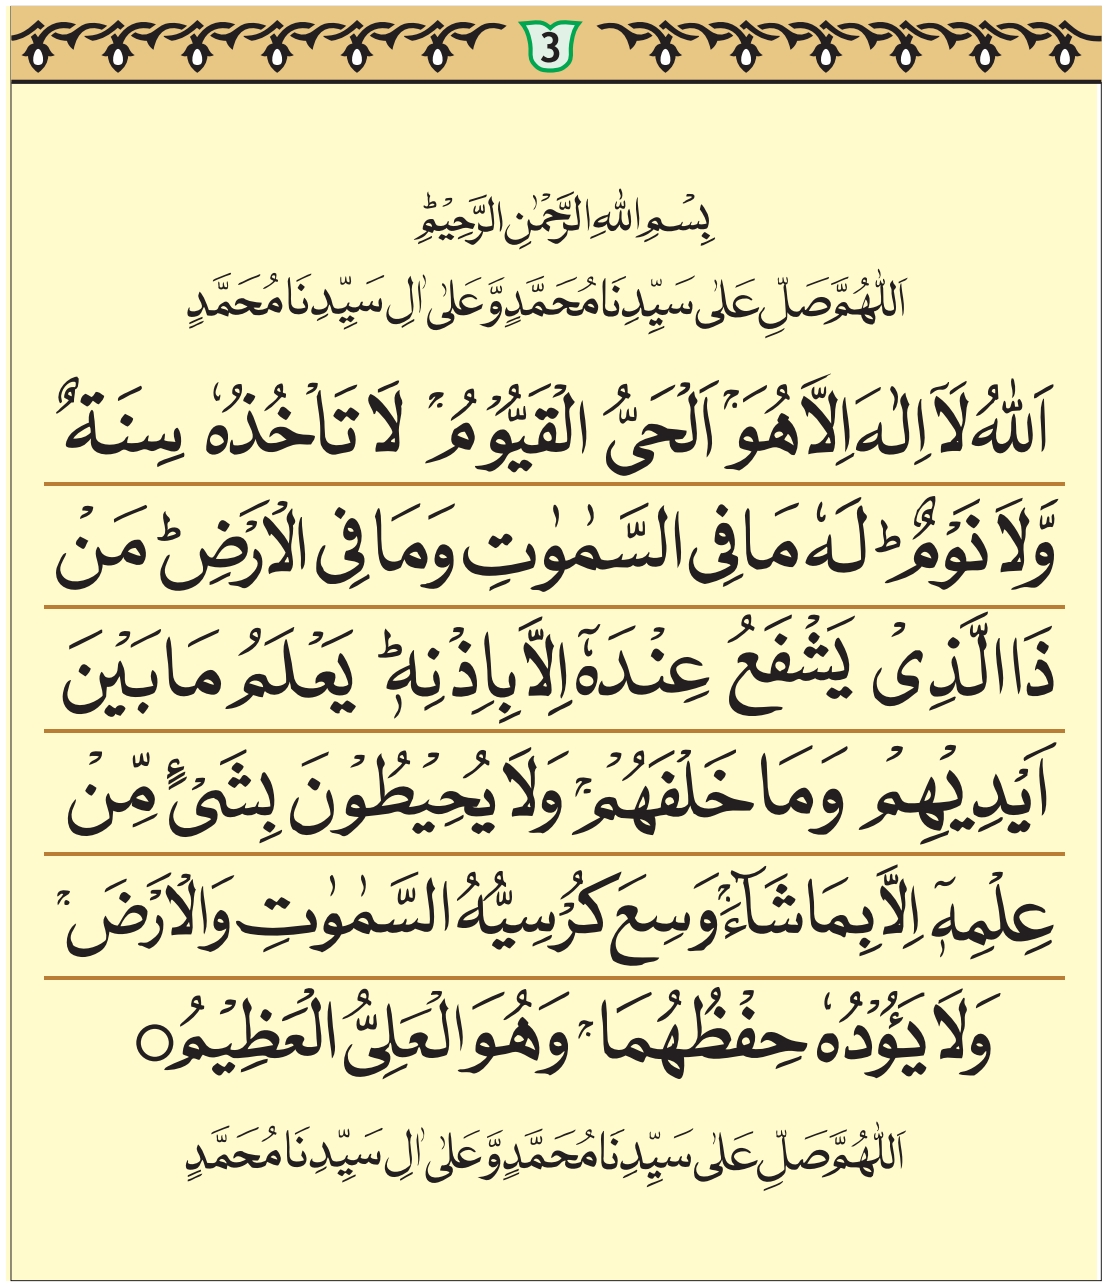 3
بِسْمِ اللهِ الرَّحْمٰنِ الرَّحِيْمِؕ
اَللّٰهُمَّ صَلِّ عَلٰى سَيِّدِنَا مُحَمَّدٍ وَّعَلٰى اٰلِ سَيِّدِنَا مُحَمَّدٍ
اَللّٰهُ لَآ اِلٰهَ اِلَّا هُوَۚ اَلْحَيُّ الْقَيُّوْمُ ۚ لَا تَاْخُذُهٗ سِنَةٌ
وَّلَا نَوْمٌؕ لَهٗ مَا فِى السَّمٰوٰتِ وَمَا فِى الْاَرْضِؕ مَنْ
ذَا الَّذِىْ يَشْفَعُ عِنْدَهٗۤ اِلَّا بِاِذْنِهٖؕ يَعْلَمُ مَا بَيْنَ
اَيْدِيْهِمْ وَمَا خَلْفَهُمْۚ وَلَا يُحِيْطُوْنَ بِشَىْءٍ مِّنْ
عِلْمِهٖۤ اِلَّا بِمَا شَآءَۚ وَسِعَ كُرْسِيُّهُ السَّمٰوٰتِ وَالْاَرْضَۚ
وَلَا يَئُوْدُهٗ حِفْظُهُمَاۚ وَهُوَ الْعَلِىُّ الْعَظِيْمُ○
اَللّٰهُمَّ صَلِّ عَلٰى سَيِّدِنَا مُحَمَّدٍ وَّعَلٰى اٰلِ سَيِّدِنَا مُحَمَّدٍ